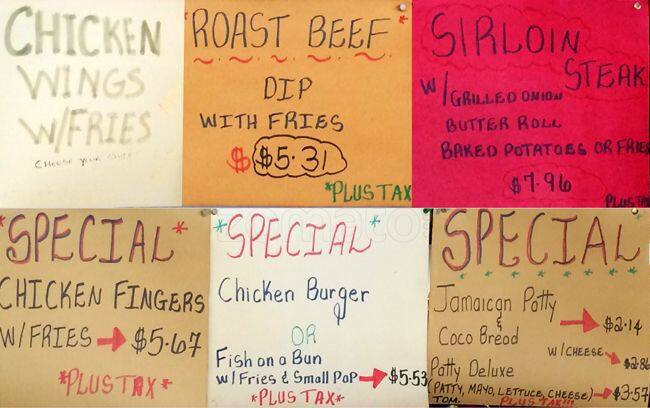 CHICKEN
WINGS
W/FRIES
CHOOSE YOUR
*ROAST BEEF*
DIP
WITH FRIES
$ $5.31
*PLUS TAX
SIRLOIN
STEAK
W/GRILLED ONION
BUTTER ROLL
BAKED POTATOES OR FRIES
$7.96
PLUS TAX
*SPECIAL*
CHICKEN FINGERS
W/FRIES → $5.67
*PLUS TAX*
*SPECIAL*
Chicken Burger
OR
Fish on a Bun
w/Fries & Small Pop → $5.53
*PLUS TAX*
SPECIAL
Jamaican Patty
& → $2.14
Coco Bread
W/CHEESE → $2.86
Patty Deluxe
(PATTY, MAYO, LETTUCE, CHEESE) → $3.57
TOM. PLUS TAX!!!